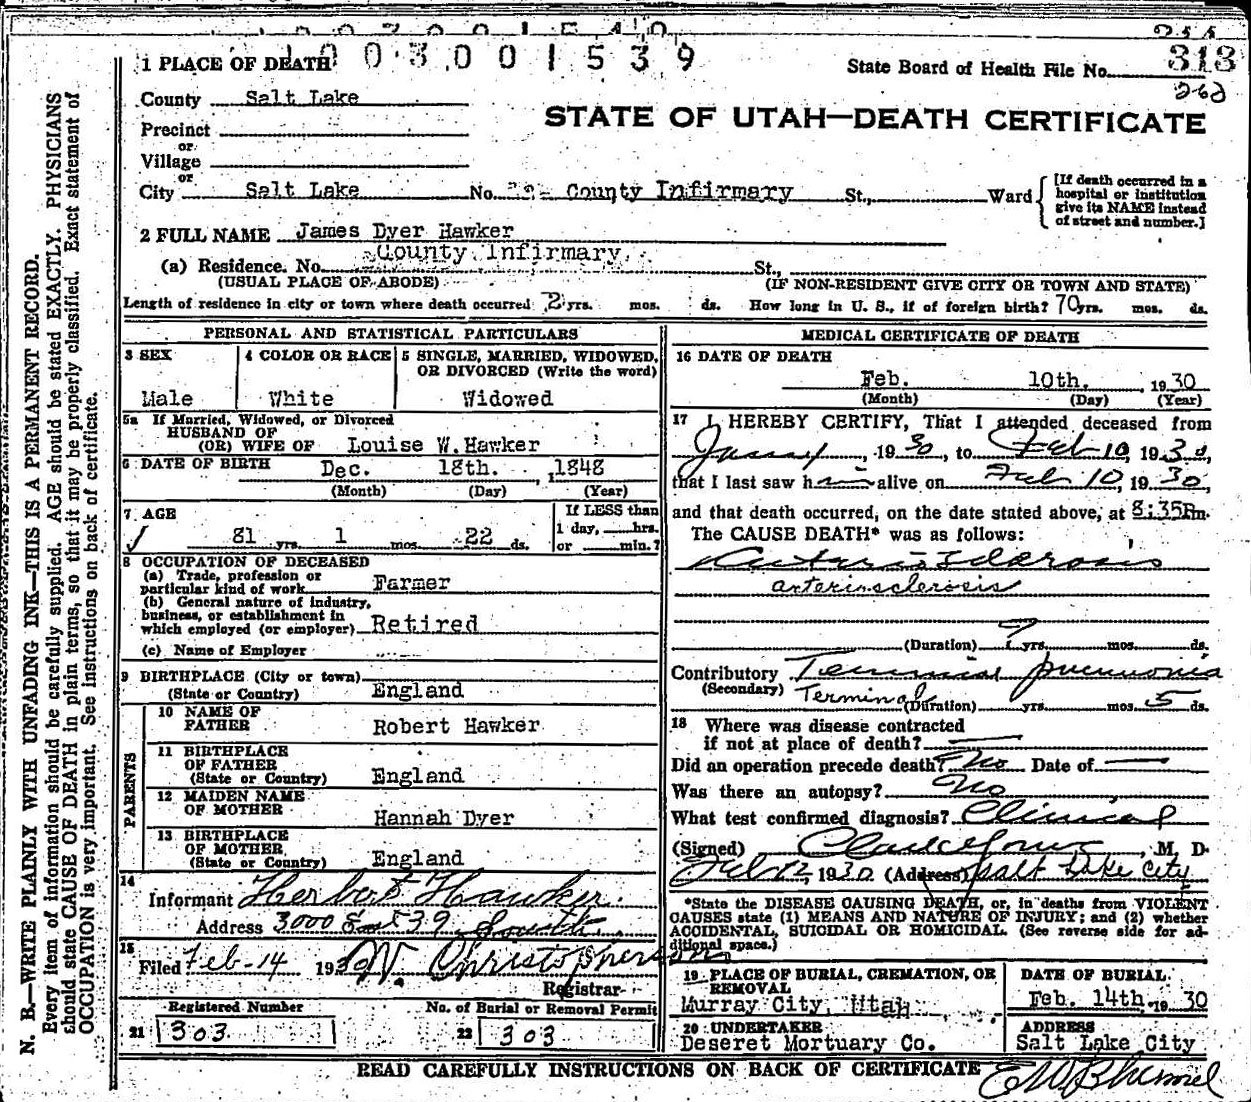 1003001539
255
1 PLACE OF DEATH
State Board of Health File No. 313
262
County Salt Lake
STATE OF UTAH—DEATH CERTIFICATE
Precinct
or
Village
or
City Salt Lake No. County Infirmary St., Ward
[If death occurred in a hospital or institution give its NAME instead of street and number.]
2 FULL NAME James Dyer Hawker
County Infirmary.
(a) Residence. No. St.,
(USUAL PLACE OF ABODE) (IF NON-RESIDENT GIVE CITY OR TOWN AND STATE)
Length of residence in city or town where death occurred 2 yrs. mos. ds. How long in U. S., if of foreign birth? 70 yrs. mos. ds.
PERSONAL AND STATISTICAL PARTICULARS
3 SEX
Male
4 COLOR OR RACE
White
5 SINGLE, MARRIED, WIDOWED, OR DIVORCED (Write the word)
Widowed
5a If Married, Widowed, or Divorced
HUSBAND OF
(OR) WIFE OF Louise W. Hawker
6 DATE OF BIRTH Dec. 18th. , 1848
(Month) (Day) (Year)
7 AGE
If LESS than
1 day, hrs.
81 yrs. 1 mos. 22 ds. or min.?
8 OCCUPATION OF DECEASED
(a) Trade, profession or
particular kind of work Farmer
(b) General nature of industry,
business, or establishment in
which employed (or employer) Retired
(c) Name of Employer
9 BIRTHPLACE (City or town)
(State or Country) England
PARENTS
10 NAME OF
FATHER Robert Hawker
11 BIRTHPLACE
OF FATHER
(State or Country) England
12 MAIDEN NAME
OF MOTHER Hannah Dyer
13 BIRTHPLACE
OF MOTHER
(State or Country) England
14
Informant Herbert Hawker.
Address 3000 East 39 South.
15
Filed Feb-14 1930 W. Christopherson
Registrar
Registered Number No. of Burial or Removal Permit
21 303 22 303
MEDICAL CERTIFICATE OF DEATH
16 DATE OF DEATH
Feb. 10th. , 1930
(Month) (Day) (Year)
17 I HEREBY CERTIFY, That I attended deceased from
, 1930, to Feb 10, 1930,
that I last saw him alive on Feb 10, 1930,
and that death occurred, on the date stated above, at 8:35Pm.
The CAUSE DEATH* was as follows:
arteriosclerosis
(Duration) yrs. mos. ds.
Contributory Terminal pneumonia
(Secondary) Terminal (Duration) yrs. mos. 5 ds.
18 Where was disease contracted
if not at place of death?
Did an operation precede death? No Date of —
Was there an autopsy? No
What test confirmed diagnosis? Clinical
(Signed) , M. D.
Feb 12, 1930 (Address) Salt Lake City
*State the DISEASE CAUSING DEATH, or, in deaths from VIOLENT
CAUSES state (1) MEANS AND NATURE OF INJURY; and (2) whether
ACCIDENTAL, SUICIDAL OR HOMICIDAL. (See reverse side for ad-
ditional space.)
19 PLACE OF BURIAL, CREMATION, OR
REMOVAL
Murray City, Utah
DATE OF BURIAL
Feb. 14th. 1930
20 UNDERTAKER
Deseret Mortuary Co.
ADDRESS
Salt Lake City
READ CAREFULLY INSTRUCTIONS ON BACK OF CERTIFICATE
N. B.—WRITE PLAINLY WITH UNFADING INK—THIS IS A PERMANENT RECORD.
Every item of information should be carefully supplied. AGE should be stated EXACTLY. PHYSICIANS
should state CAUSE OF DEATH in plain terms, so that it may be properly classified. Exact statement of
OCCUPATION is very important. See instructions on back of certificate.